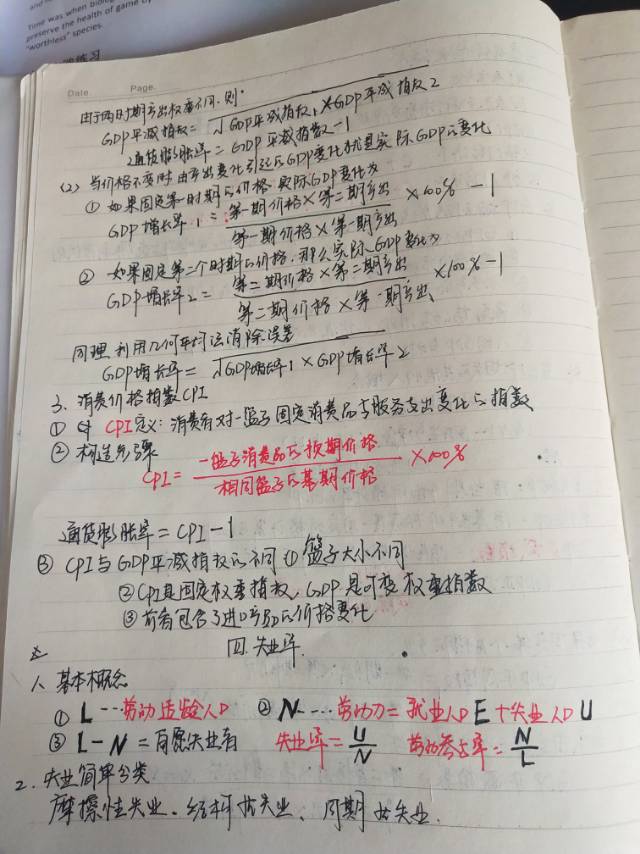 Time was when biolog
preserve the health of game by
"worthless" species.
练习
Date Page
由于两时期产出权重不同,则:
GDP平减指数=√GDP平减指数1×GDP平减指数2
通货膨胀率=GDP平减指数-1
(2) 当价格不变时由产出变化引起的GDP变化就是实际GDP的变化
① 如果固定第一时期的价格,实际GDP变化为
GDP增长率1=第一期价格×第二期产出/第一期价格×第一期产出×100%-1
② 如果固定第二个时期的价格,那么实际GDP变化为
GDP增长率2=第二期价格×第二期产出/第二期价格×第一期产出×100%-1
同理利用几何平均法消除误差
GDP增长率=√GDP增长率1×GDP增长率2
3. 消费价格指数CPI
① CPI定义:消费者对一篮子固定消费品与服务支出变化的指数
② 构造步骤
CPI=一篮子消费品的预期价格/相同篮子的基期价格×100%
通货膨胀率=CPI-1
③ CPI与GDP平减指数的不同①篮子大小不同
②CPI是固定权重指数,GDP是可变权重指数
③前者包含了进口品的价格变化
四.失业率.
1. 基本概念
① L---劳动适龄人口 ② N----劳动力=就业人口E+失业人口U
③ L-N=自愿失业者 失业率=U/N 劳动参与率=N/L
2. 失业简单分类
摩擦性失业、结构性失业、周期性失业.